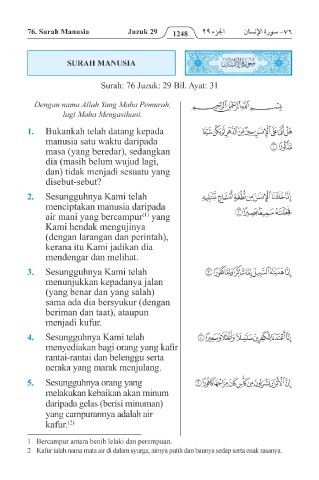 76. Surah Manusia Juzuk 29 1248 ٧٦- سورة الإنسان الجزء ٢٩
SURAH MANUSIA
سُورَةُ الإِنسَانِ
Surah: 76 Juzuk: 29 Bil. Ayat: 31
Dengan nama Allah Yang Maha Pemurah,
lagi Maha Mengasihani.
بِسْمِ اللَّهِ الرَّحْمَٰنِ الرَّحِيمِ
1. Bukankah telah datang kepada
manusia satu waktu daripada
masa (yang beredar), sedangkan
dia (masih belum wujud lagi,
dan) tidak menjadi sesuatu yang
disebut-sebut?
هَلْ أَتَىٰ عَلَى الْإِنسَانِ حِينٌ مِّنَ الدَّهْرِ لَمْ يَكُن شَيْئًا
مَّذْكُورًا ۝١
2. Sesungguhnya Kami telah
menciptakan manusia daripada
air mani yang bercampur(1) yang
Kami hendak mengujinya
(dengan larangan dan perintah),
kerana itu Kami jadikan dia
mendengar dan melihat.
إِنَّا خَلَقْنَا الْإِنسَانَ مِن نُّطْفَةٍ أَمْشَاجٍ نَّبْتَلِيهِ
فَجَعَلْنَاهُ سَمِيعًا بَصِيرًا ۝٢
3. Sesungguhnya Kami telah
menunjukkan kepadanya jalan
(yang benar dan yang salah)
sama ada dia bersyukur (dengan
beriman dan taat), ataupun
menjadi kufur.
إِنَّا هَدَيْنَاهُ السَّبِيلَ إِمَّا شَاكِرًا وَإِمَّا كَفُورًا ۝٣
4. Sesungguhnya Kami telah
menyediakan bagi orang yang kafir
rantai-rantai dan belenggu serta
neraka yang marak menjulang.
إِنَّا أَعْتَدْنَا لِلْكَافِرِينَ سَلَاسِلَ وَأَغْلَالًا وَسَعِيرًا ۝٤
5. Sesungguhnya orang yang
melakukan kebaikan akan minum
daripada gelas (berisi minuman)
yang campurannya adalah air
kafur.(2)
إِنَّ الْأَبْرَارَ يَشْرَبُونَ مِن كَأْسٍ كَانَ مِزَاجُهَا كَافُورًا ۝٥
1 Bercampur antara benih lelaki dan perempuan.
2 Kafur ialah nama mata air di dalam syurga, airnya putih dan baunya sedap serta enak rasanya.